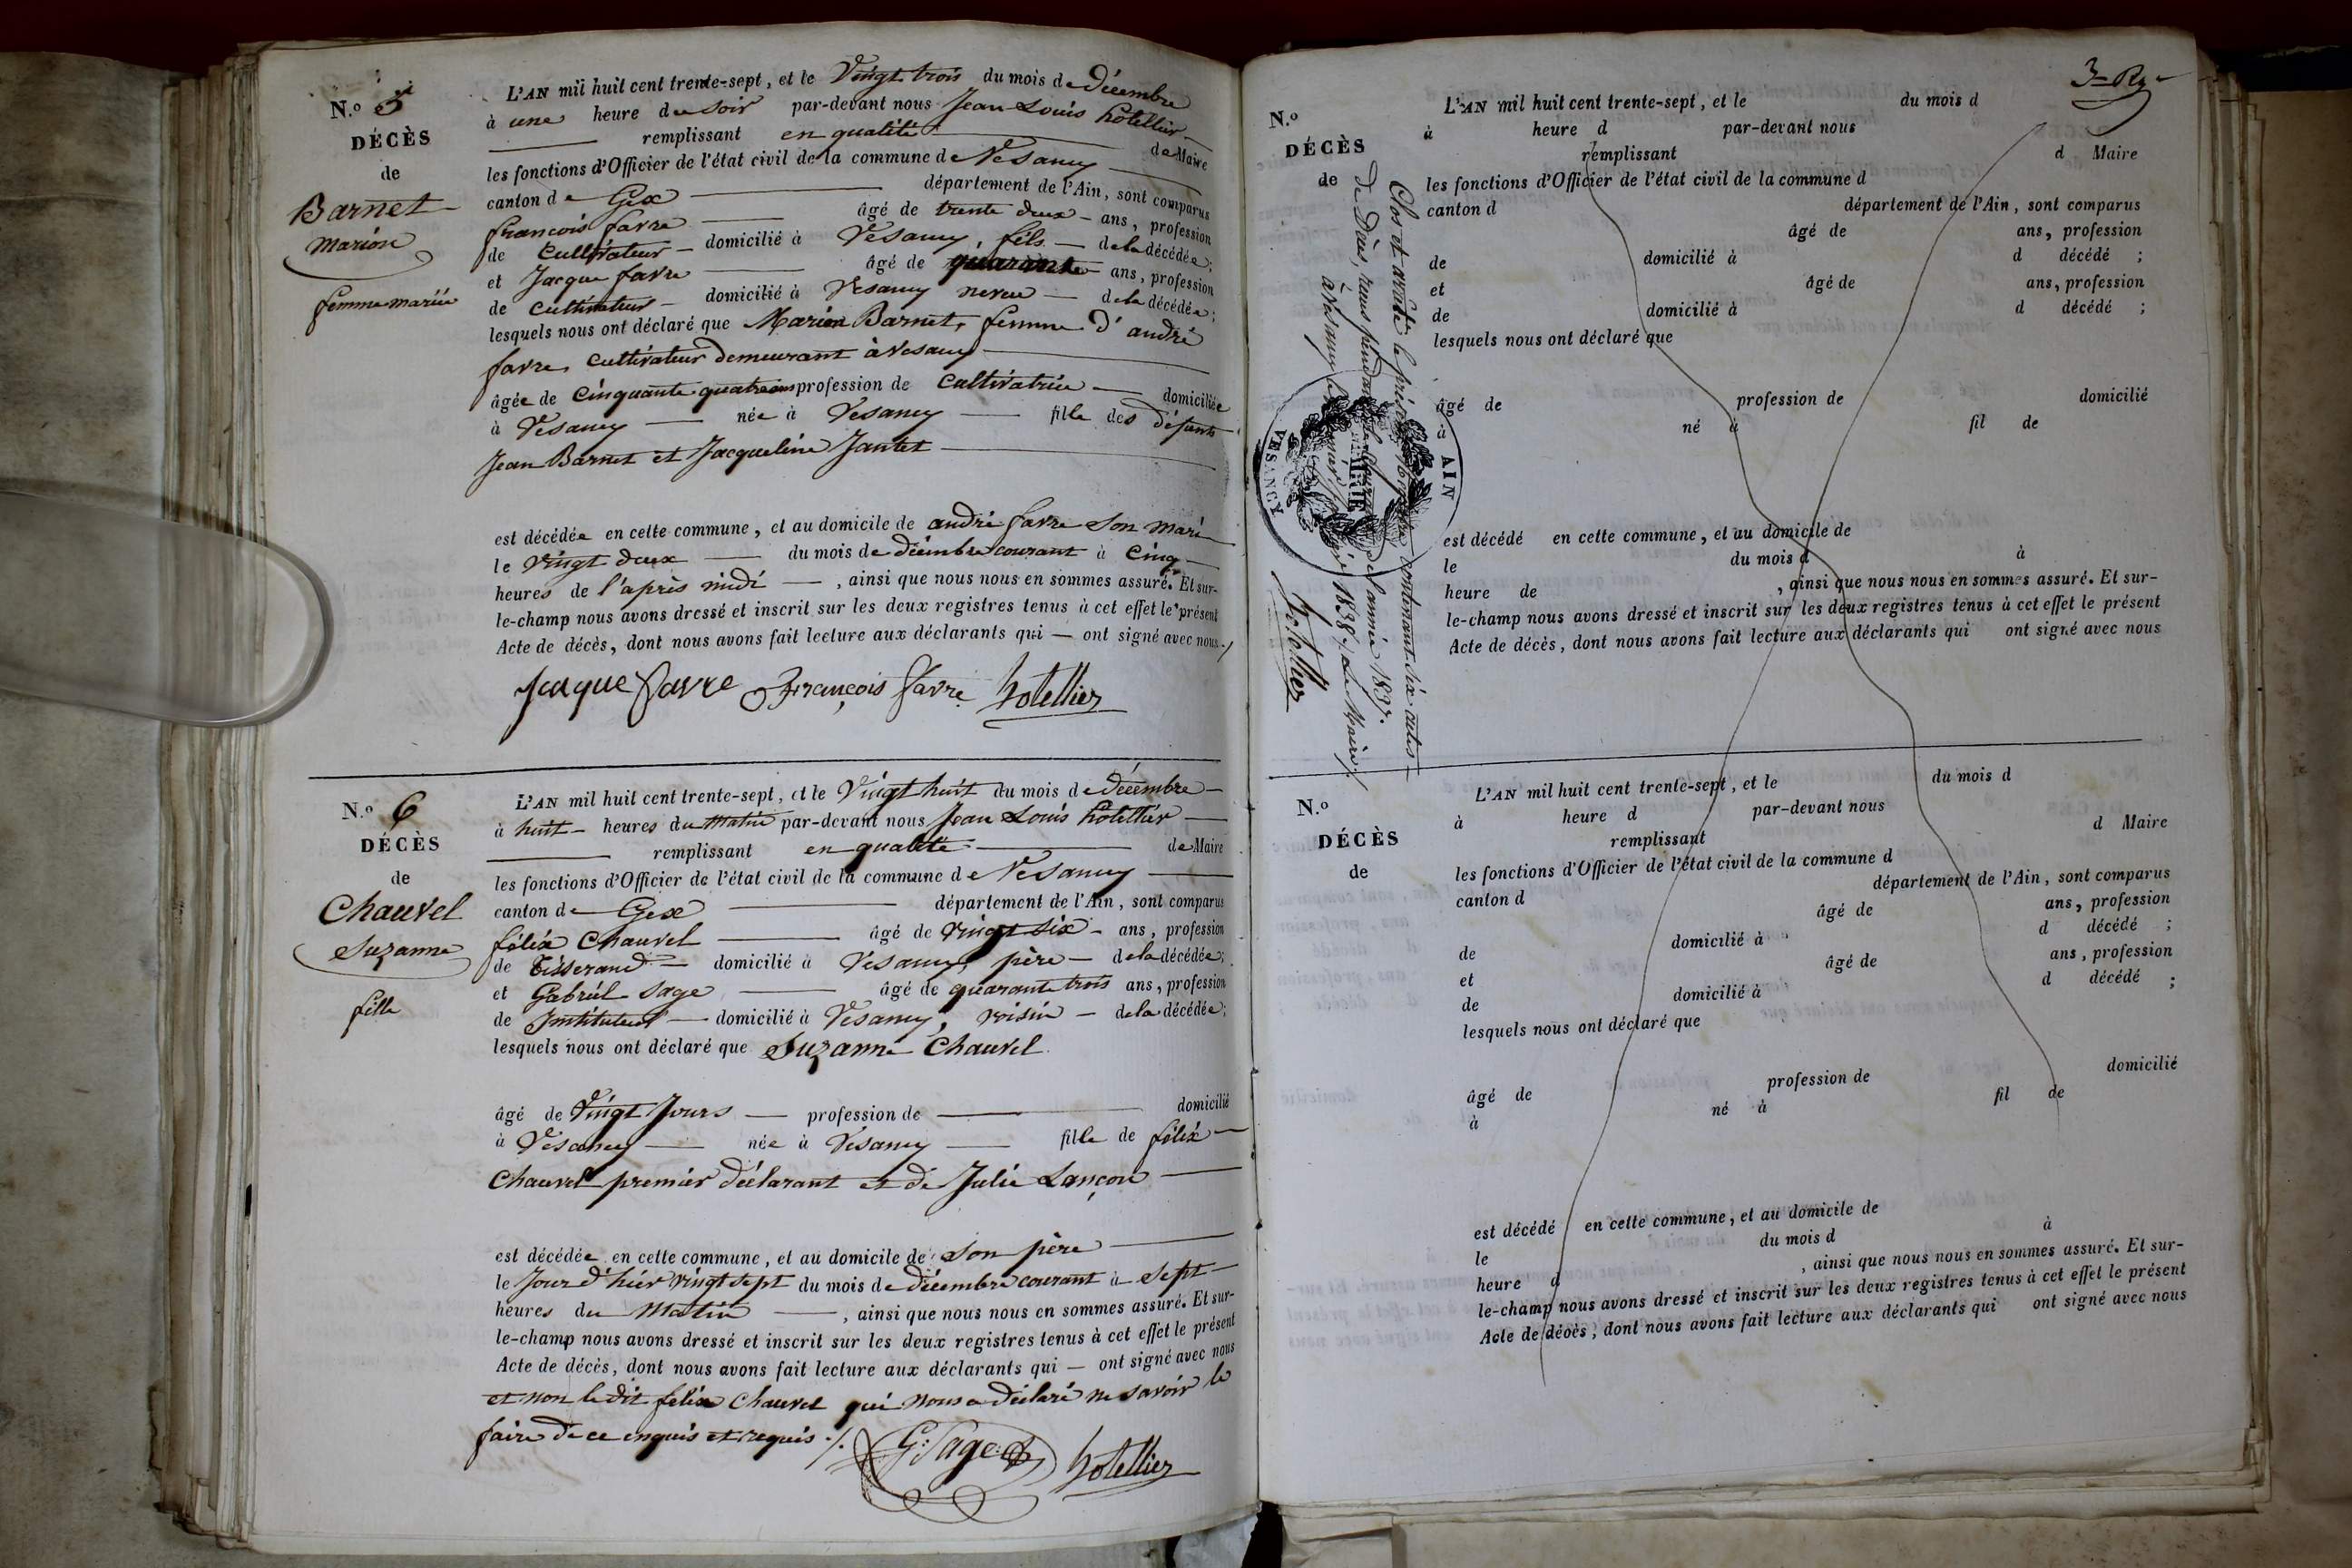 N.o 5
DÉCÈS
de
Barnet
Marion
femme mariée
L'AN mil huit cent trente-sept, et le Vingt trois du mois de décembre
à une heure du soir par-devant nous Jean Louis hotellier
remplissant en qualité de Maire
les fonctions d'Officier de l'état civil de la commune de Vesancy
canton de Gex département de l'Ain, sont comparus
francois favre âgé de trente deux ans, profession
de Cultivateur domicilié à Vesancy, fils de la décédée;
et Jacque favre âgé de quarante ans, profession
de cultivateur domicilié à Vesancy neveu de la décédée;
lesquels nous ont déclaré que Marion Barnet, femme d'andré
favre, cultivateur demeurant à Vesancy
âgée de cinquante quatre ans profession de cultivatrice domiciliée
à Vesancy née à Vesancy fille des défunts
Jean Barnet et Jacqueline Jantet
est décédée en cette commune, et au domicile de andré favre son mari
le vingt deux du mois de décembre courant à cinq
heures de l'après midi, ainsi que nous nous en sommes assuré. Et sur-
le-champ nous avons dressé et inscrit sur les deux registres tenus à cet effet le présent
Acte de décès, dont nous avons fait lecture aux déclarants qui — ont signé avec nous ./
Jacque favre François favre hotellier
N.o 6
DÉCÈS
de
Chauvel
Suzanne
fille
L'AN mil huit cent trente-sept, et le Vingt huit du mois de décembre
à huit heures du matin par-devant nous Jean Louis hotellier
remplissant en qualité de Maire
les fonctions d'Officier de l'état civil de la commune de Vesancy
canton de Gex département de l'Ain, sont comparus
félix Chauvel âgé de vingt six ans, profession
de Tisserand domicilié à Vesancy, père de la décédée;
et Gabriel Sage âgé de quarante trois ans, profession
de Instituteur domicilié à Vesancy, voisin de la décédée;
lesquels nous ont déclaré que Suzanne Chauvel
âgé de Vingt Jours profession de — domicilié
à Vesancy née à Vesancy fille de félix
Chauvel premier déclarant et de Julie Lançon
est décédée en cette commune, et au domicile de son père
le Jour d'hier vingt sept du mois de décembre courant à sept
heures du Matin, ainsi que nous nous en sommes assuré. Et sur-
le-champ nous avons dressé et inscrit sur les deux registres tenus à cet effet le présent
Acte de décès, dont nous avons fait lecture aux déclarants qui — ont signé avec nous
et non le dit félix Chauvel qui nous a déclaré ne savoir le
faire de ce enquis et requis ./.
G: Sage hotellier
N.o
DÉCÈS
de
L'AN mil huit cent trente-sept, et le du mois d
à heure d par-devant nous
remplissant d Maire
les fonctions d'Officier de l'état civil de la commune d
canton d département de l'Ain, sont comparus
âgé de ans, profession
de domicilié à d décédé ;
et âgé de ans, profession
de domicilié à d décédé ;
lesquels nous ont déclaré que
âgé de profession de domicilié
à né à fil de
est décédé en cette commune, et au domicile de
le du mois d à
heure de , ainsi que nous nous en sommes assuré. Et sur-
le-champ nous avons dressé et inscrit sur les deux registres tenus à cet effet le présent
Acte de décès, dont nous avons fait lecture aux déclarants qui ont signé avec nous
Clos et arrêté le présent registre contenant six actes
de Décès, reçus pendant le cours de l'année 1837.
à Vesancy le 1838. Le Maire ./
hotellier
AIN
MAIRIE
VESANCY
N.o
DÉCÈS
de
L'AN mil huit cent trente-sept, et le du mois d
à heure d par-devant nous
remplissant d Maire
les fonctions d'Officier de l'état civil de la commune d
canton d département de l'Ain, sont comparus
âgé de ans, profession
de domicilié à d décédé ;
et âgé de ans, profession
de domicilié à d décédé ;
lesquels nous ont déclaré que
âgé de profession de domicilié
à né à fil de
est décédé en cette commune, et au domicile de
le du mois d à
heure d , ainsi que nous nous en sommes assuré. Et sur-
le-champ nous avons dressé et inscrit sur les deux registres tenus à cet effet le présent
Acte de décès, dont nous avons fait lecture aux déclarants qui ont signé avec nous